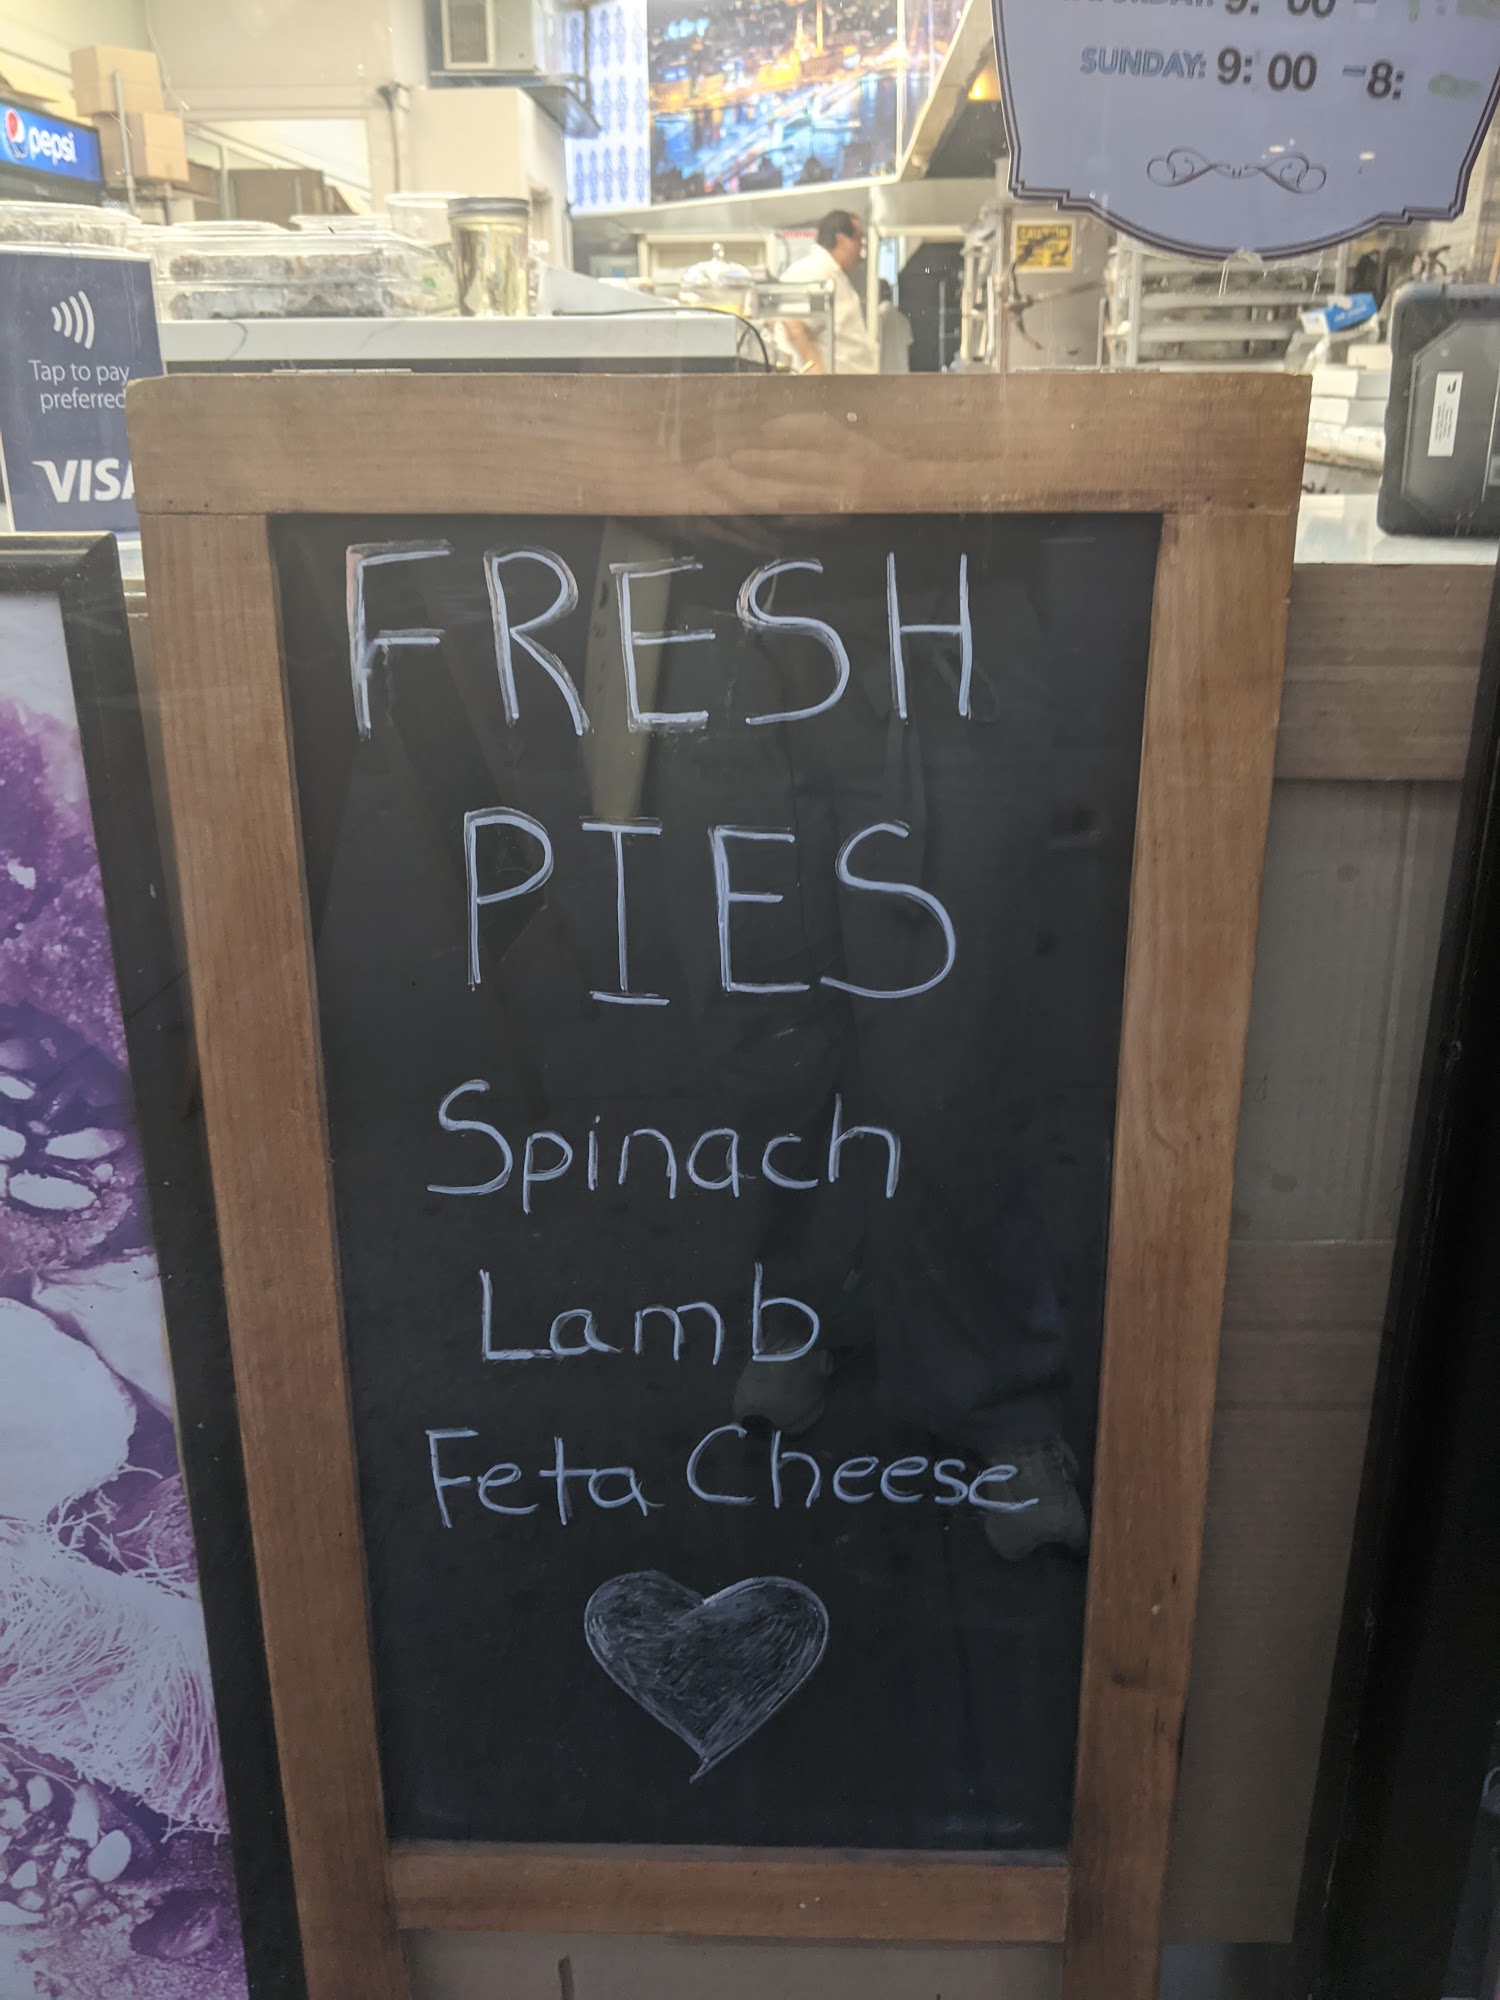 SUNDAY: 9:00 - 8:
pepsi
CAUTION
Tap to pay
preferred
VISA
FRESH
PIES
Spinach
Lamb
Feta Cheese